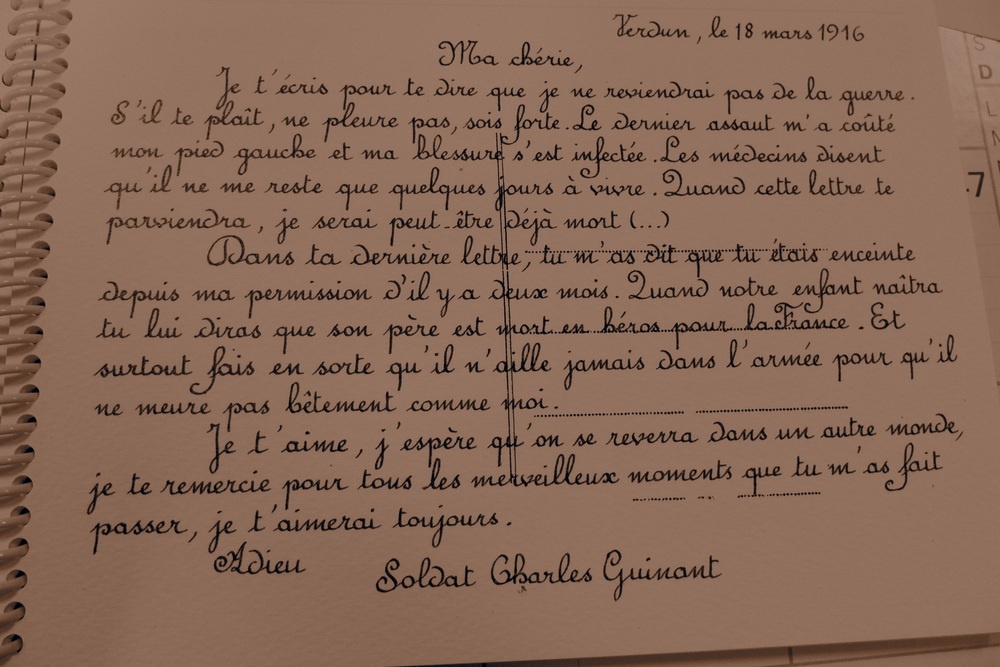 Verdun, le 18 mars 1916
Ma chérie,
Je t'écris pour te dire que je ne reviendrai pas de la guerre.
S'il te plaît, ne pleure pas, sois forte. Le dernier assaut m'a coûté
mon pied gauche et ma blessure s'est infectée. Les médecins disent
qu'il ne me reste que quelques jours à vivre. Quand cette lettre te
parviendra, je serai peut-être déjà mort (...)
Dans ta dernière lettre, tu m'as dit que tu étais enceinte
depuis ma permission d'il y a deux mois. Quand notre enfant naîtra
tu lui diras que son père est mort en héros pour la France. Et
surtout fais en sorte qu'il n'aille jamais dans l'armée pour qu'il
ne meure pas bêtement comme moi.
Je t'aime, j'espère qu'on se reverra dans un autre monde,
je te remercie pour tous les merveilleux moments que tu m'as fait
passer, je t'aimerai toujours.
Adieu
Soldat Charles Guinant
S
D
L
7